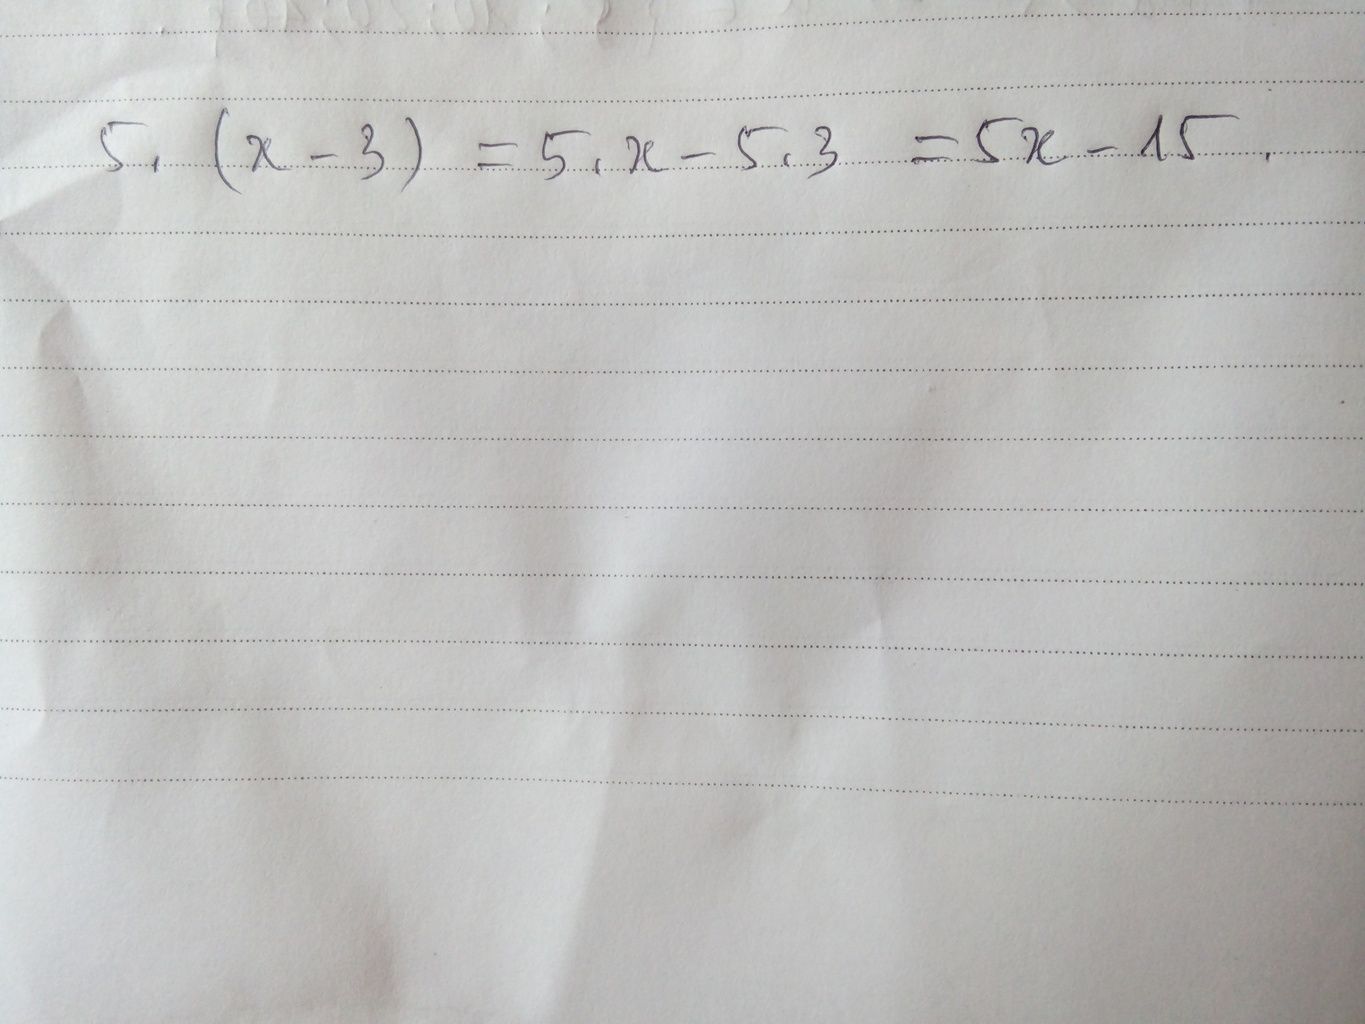 5. (x - 3) = 5.x - 5.3 = 5x - 15.